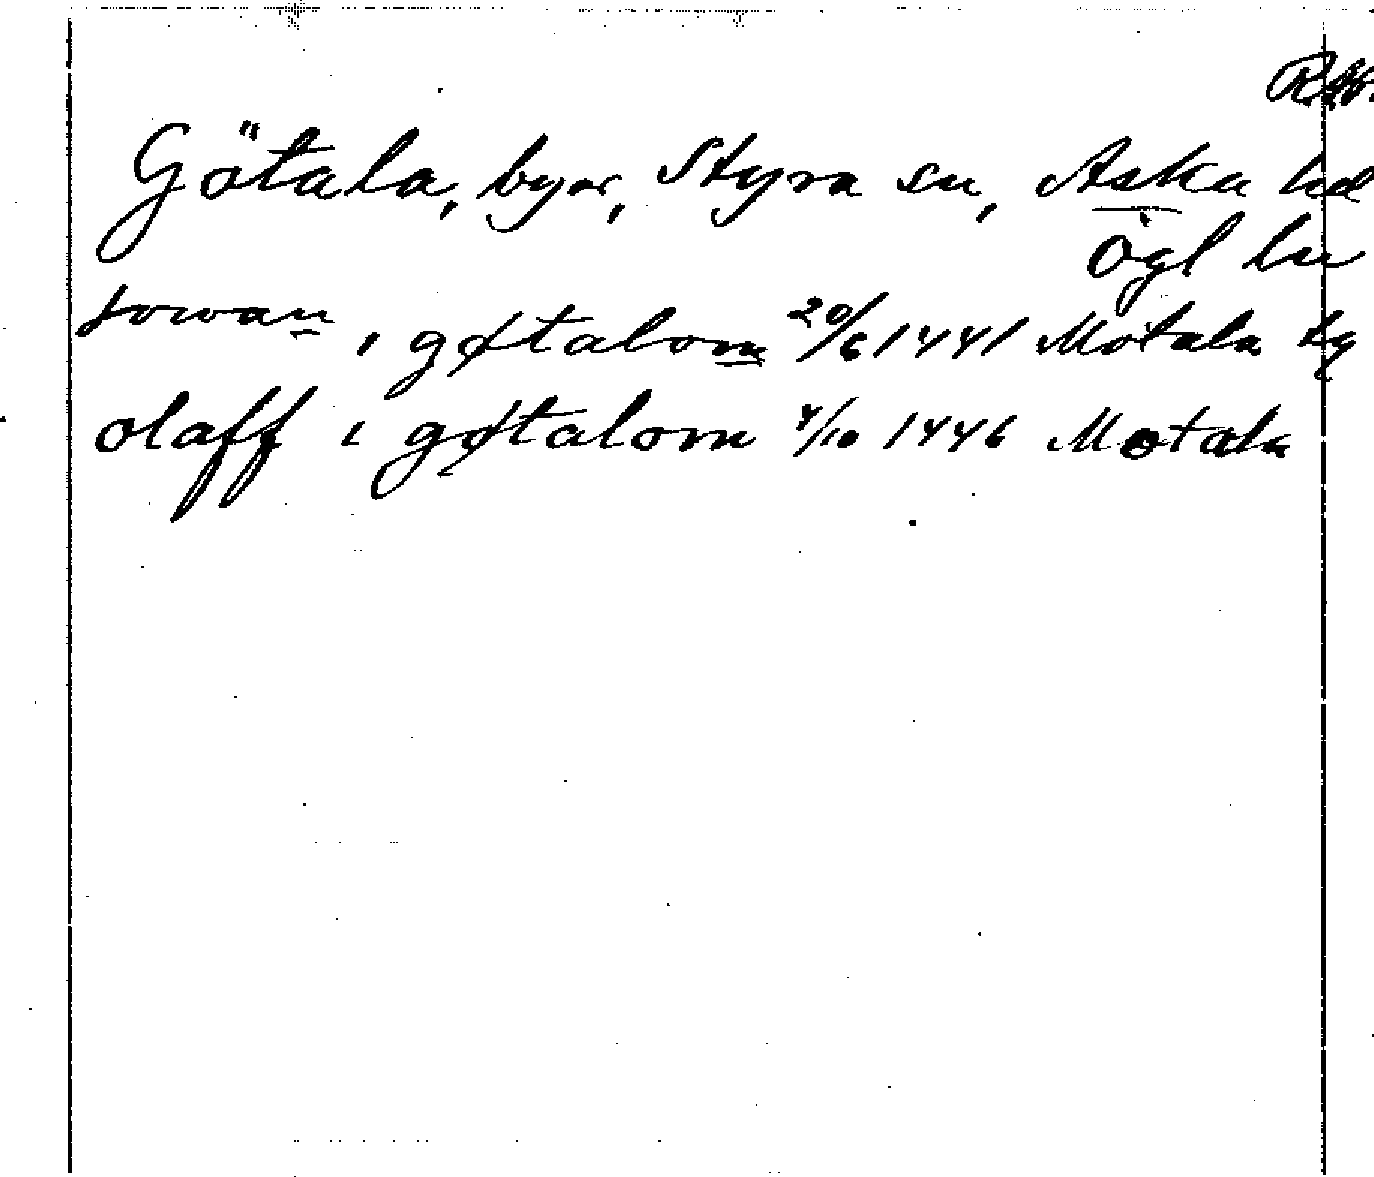 Götala, byar, Styra sn, Aska hd
Ögl ln
i gøtalom 20/6 1441 Motala tg
olaff i gøtalom 4/10 1446 Motala